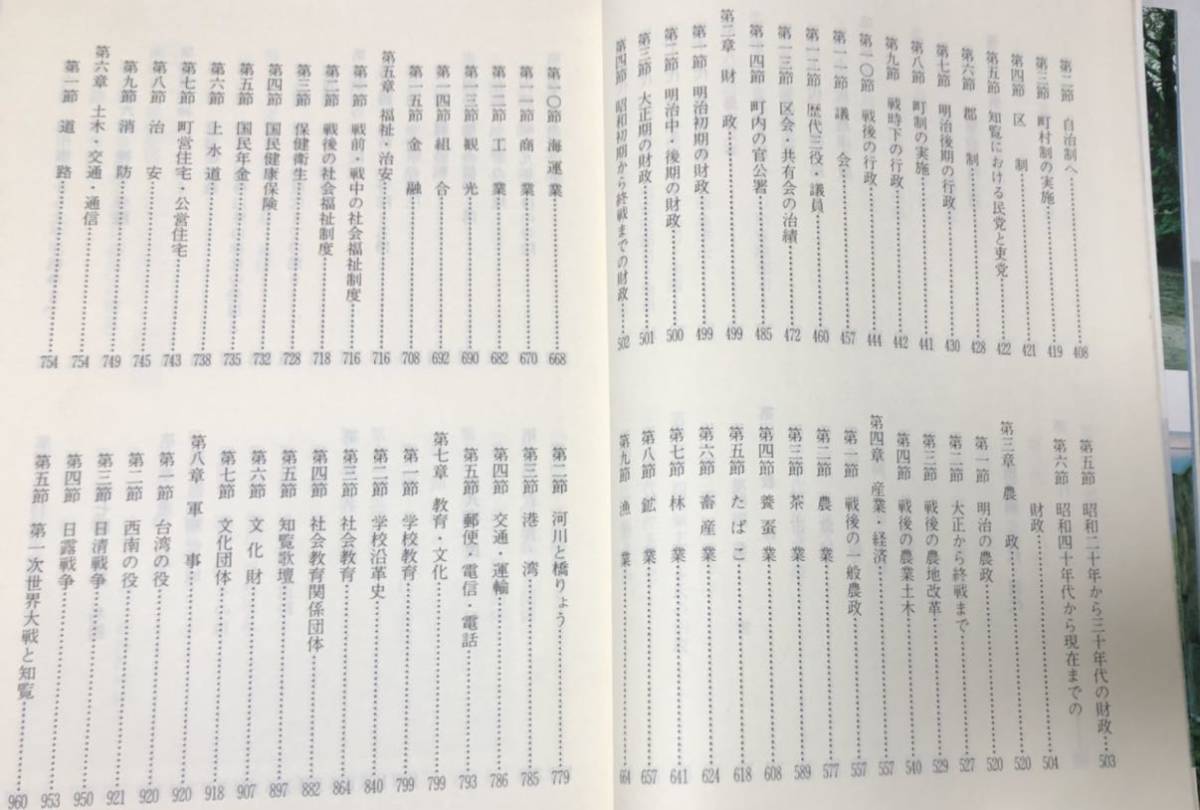 第二節 自治制へ 408
第三節 町村制の実施 419
第四節 区制 421
第五節 知覧における民党と吏党 422
第六節 郡制 428
第七節 明治後期の行政 430
第八節 町制の実施 441
第九節 戦時下の行政 442
第一〇節 戦後の行政 444
第一一節 議会 457
第一二節 歴代三役・議員 460
第一三節 区会・共有会の治績 472
第一四節 町内の官公署 485
第二章 財政 499
第一節 明治初期の財政 499
第二節 明治中・後期の財政 500
第三節 大正期の財政 501
第四節 昭和初期から終戦までの財政 502
第五節 昭和二十年から三十年代の財政 503
第六節 昭和四十年代から現在までの
財政 504
第三章 農政 520
第一節 明治の農政 520
第二節 大正から終戦まで 527
第三節 戦後の農地改革 529
第四節 戦後の農業土木 540
第四章 産業・経済 557
第一節 戦後の一般農政 557
第二節 農業 577
第三節 茶業 589
第四節 養蚕業 608
第五節 たばこ 618
第六節 畜産業 624
第七節 林業 641
第八節 鉱業 657
第九節 漁業 664
第一〇節 海運業 668
第一一節 商業 670
第一二節 工業 682
第一三節 観光 690
第一四節 組合 692
第一五節 金融 708
第五章 福祉・治安 716
第一節 戦前・戦中の社会福祉制度 716
第二節 戦後の社会福祉制度 718
第三節 保健衛生 728
第四節 国民健康保険 732
第五節 国民年金 735
第六節 上水道 738
第七節 町営住宅・公営住宅 743
第八節 治安 745
第九節 消防 749
第六章 土木・交通・通信 754
第一節 道路 754
第二節 河川と橋りょう 779
第三節 港湾 785
第四節 交通・運輸 786
第五節 郵便・電信・電話 793
第七章 教育・文化 799
第一節 学校教育 799
第二節 学校沿革史 840
第三節 社会教育 864
第四節 社会教育関係団体 882
第五節 知覧歌壇 897
第六節 文化財 907
第七節 文化団体 918
第八章 軍事 920
第一節 台湾の役 920
第二節 西南の役 921
第三節 日清戦争 950
第四節 日露戦争 953
第五節 第一次世界大戦と知覧 960